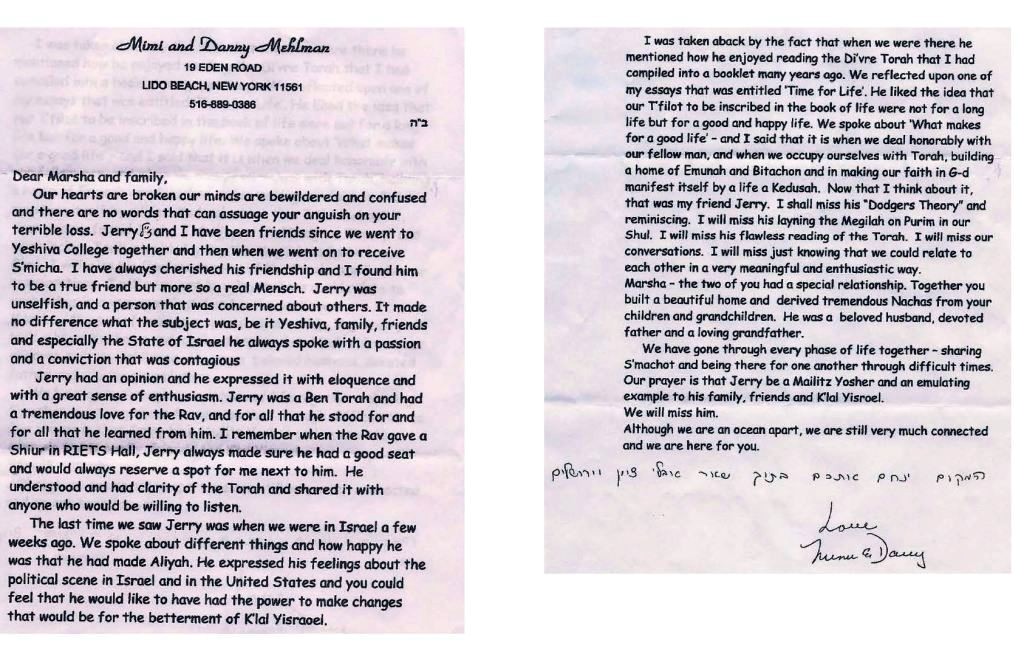 Mimi and Danny Mehlman
19 EDEN ROAD
LIDO BEACH, NEW YORK 11561
516-889-0386
ב"ה
Dear Marsha and family,
Our hearts are broken our minds are bewildered and confused
and there are no words that can assuage your anguish on your
terrible loss. Jerry and I have been friends since we went to
Yeshiva College together and then when we went on to receive
S'micha. I have always cherished his friendship and I found him
to be a true friend but more so a real Mensch. Jerry was
unselfish, and a person that was concerned about others. It made
no difference what the subject was, be it Yeshiva, family, friends
and especially the State of Israel he always spoke with a passion
and a conviction that was contagious
Jerry had an opinion and he expressed it with eloquence and
with a great sense of enthusiasm. Jerry was a Ben Torah and had
a tremendous love for the Rav, and for all that he stood for and
for all that he learned from him. I remember when the Rav gave a
Shiur in RIETS Hall, Jerry always made sure he had a good seat
and would always reserve a spot for me next to him. He
understood and had clarity of the Torah and shared it with
anyone who would be willing to listen.
The last time we saw Jerry was when we were in Israel a few
weeks ago. We spoke about different things and how happy he
was that he had made Aliyah. He expressed his feelings about the
political scene in Israel and in the United States and you could
feel that he would like to have had the power to make changes
that would be for the betterment of K'lal Yisraoel.
I was taken aback by the fact that when we were there he
mentioned how he enjoyed reading the Di'vre Torah that I had
compiled into a booklet many years ago. We reflected upon one of
my essays that was entitled 'Time for Life'. He liked the idea that
our T'filot to be inscribed in the book of life were not for a long
life but for a good and happy life. We spoke about 'What makes
for a good life' – and I said that it is when we deal honorably with
our fellow man, and when we occupy ourselves with Torah, building
a home of Emunah and Bitachon and in making our faith in G-d
manifest itself by a life a Kedusah. Now that I think about it,
that was my friend Jerry. I shall miss his "Dodgers Theory" and
reminiscing. I will miss his layning the Megilah on Purim in our
Shul. I will miss his flawless reading of the Torah. I will miss our
conversations. I will miss just knowing that we could relate to
each other in a very meaningful and enthusiastic way.
Marsha – the two of you had a special relationship. Together you
built a beautiful home and derived tremendous Nachas from your
children and grandchildren. He was a beloved husband, devoted
father and a loving grandfather.
We have gone through every phase of life together – sharing
S'machot and being there for one another through difficult times.
Our prayer is that Jerry be a Mailitz Yosher and an emulating
example to his family, friends and K'lal Yisroel.
We will miss him.
Although we are an ocean apart, we are still very much connected
and we are here for you.
המקום ינחם אתכם בתוך שאר אבלי ציון וירושלים
Love
Mimi & Danny